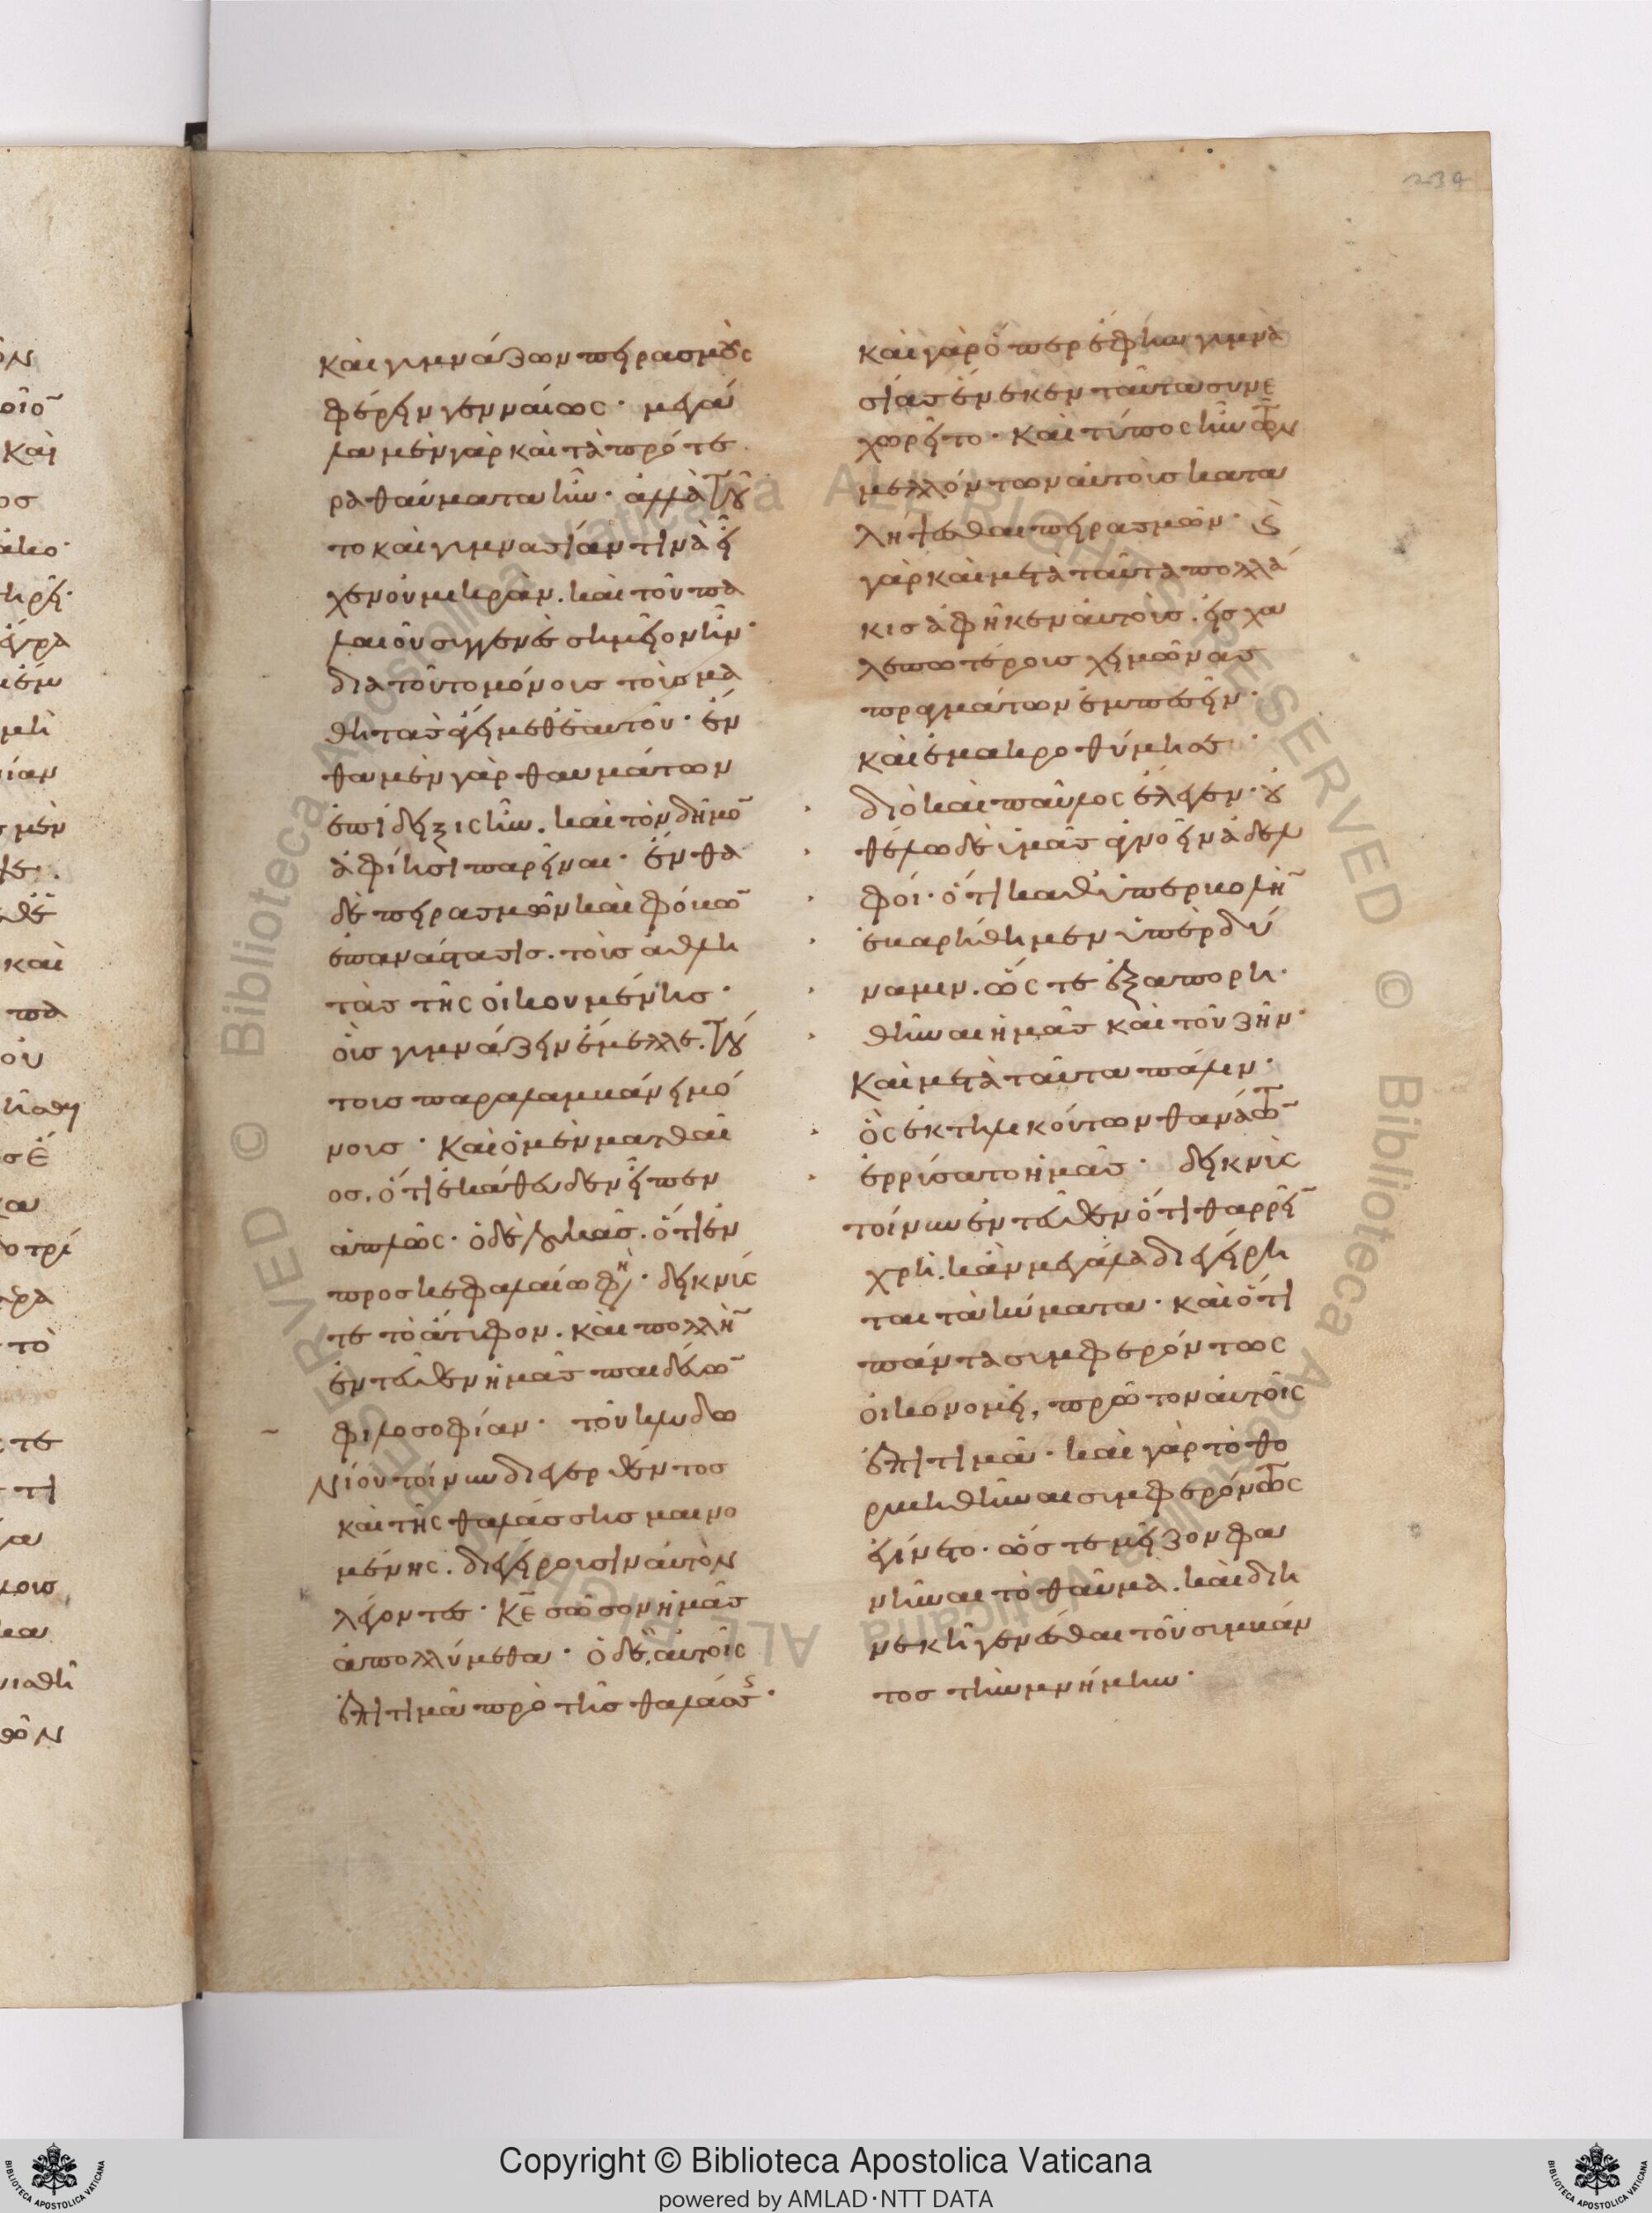 234
καὶ γυμνάζων πειρασμοὺς
φέρειν γενναίως· μεγά
λα μὲν γὰρ καὶ τὰ πρότε
ρα θαύματα ἦν· ἀλλὰ τοῦ
το καὶ γυμνασίαν τινὰ εἶ
χεν οὐ μικράν. καὶ τοῦ πα
λαιοῦ συγγενὲς σημεῖον ἦν·
διὰ τοῦτο μόνοις τοῖς μα
θητὰς ἄγει μεθ' ἑαυτοῦ· ἔν
θα μὲν γὰρ θαυμάτων
ἐπίδειξις ἦν. καὶ τὸν δῆμο̄
ἀφίησι παρεῖναι· ἔνθα
δὲ πειρασμῶν καὶ φόβω̄
ἐπανάστασις. τοῖς ἀθλη
τὰς τῆς οἰκουμένης·
οἷς γυμνάζειν ἔμελλε. τού
τοις παραλαμβάνει μό
νοις· καὶ ὁ μὲν ματθαῖ
ος. ὅτι ἐκάθευδεν εἶπεν
ἁπλῶς· ὁ δὲ λουκᾶς. ὅτι ἐν
προσκεφαλαίω φη· δεικνύς
τε τὸ ἄτυφον. καὶ πολλὴ̄
ἐντεῦθεν ἡμᾶς παιδεύω̄
φιλοσοφίαν· τοῦ κλυδω
νίου τοίνυν διεγερθέντος
καὶ τῆς θαλάσσης μαινο
μένης. διεγείρουσιν αὐτὸν
λέγοντες· κε̄ σῶσον ἡμᾶς
ἀπολλύμεθα· ὁ δὲ αὐτοῖς
ἐπιτιμᾶ πρὸ τῆς θαλάσς·
καὶ γὰρ ὅπερ ἔφην γυμνα
σίας ἕνεκεν ταῦτα συνε
χωρεῖτο· καὶ τύπος ἦν τῶν
μελλόντων αὐτοὺς κατα
λήψεσθαι πειρασμῶν· καὶ
γὰρ καὶ μετὰ ταῦτα πολλά
κις ἀφῆκεν αὐτοὺς. εἰς χα
λεπωτέρους χειμῶνας
πραγμάτων ἐμπεσεῖν·
καὶ ἐμακροθύμησε·
διὸ καὶ παῦλος ἔλεγεν· οὐ
θέλω δὲ ὑμᾶς ἀγνοεῖν ἀδελ
φοί· ὅτι καθ' ὑπερβολὴ̄
ἐβαρήθημεν ὑπὲρ δύ
ναμιν. ὥστε ἐξαπορη
θῆναι ἡμᾶς καὶ τοῦ ζῆν·
καὶ μετὰ ταῦτα πάλιν·
ὃς ἐκ τηλικούτων θανάτω̄
ἐρρύσατο ἡμᾶς· δεικνὺς
τοίνυν ἐντεῦθεν ὅτι θαρρεῖ̄
χρὴ. κἂν μεγάλα διεγείρη
ται τὰ κύματα· καὶ ὅτι
πάντα συμφερόντως
οἰκονομεῖ, πρῶτον αὐτοῖς
ἐπιτιμᾶ· καὶ γὰρ τὸ θο
ρυβηθῆναι συμφερόντως
ἐγίνετο· ὥστε μεῖζον φα
νῆναι τὸ θαῦμα. καὶ διη
νεκῆ γενέσθαι τοῦ συμβάν
τος τὴν μνήμην·
Copyright © Biblioteca Apostolica Vaticana
powered by AMLAD·NTT DATA